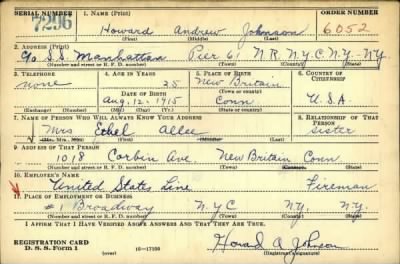 SERIAL NUMBER 1. NAME (Print) ORDER NUMBER
7206 Howard Andrew Johnson 6052
(First) (Middle) (Last)
2. ADDRESS (Print)
c/o S.S. Manhattan Pier 61 N.R. N.Y.C. N.Y. N.Y.
(Number and street or R. F. D. number) (Town) (County) (State)
3. TELEPHONE 4. AGE IN YEARS 5. PLACE OF BIRTH 6. COUNTRY OF CITIZENSHIP
none 25 New Britain
DATE OF BIRTH (Town or county)
Aug. 12, 1915 Conn U.S.A.
(Exchange) (Number) (Mo.) (Day) (Yr.) (State or country)
7. NAME OF PERSON WHO WILL ALWAYS KNOW YOUR ADDRESS 8. RELATIONSHIP OF THAT PERSON
Mrs Ethel Allee Sister
(Mr., Mrs., Miss) (First) (Middle) (Last)
9. ADDRESS OF THAT PERSON
1018 Corbin Ave. New Britain Conn.
(Number and street or R. F. D. number) (Town) (County) (State)
10. EMPLOYER'S NAME
United States Line Fireman
11. PLACE OF EMPLOYMENT OR BUSINESS
#1 Broadway N.Y.C N.Y. N.Y.
(Number and street or R. F. D. number) (Town) (County) (State)
I AFFIRM THAT I HAVE VERIFIED ABOVE ANSWERS AND THAT THEY ARE TRUE.
REGISTRATION CARD
D. S. S. Form 1 (over) 16—17105 Howard A Johnson
(Registrant's signature)